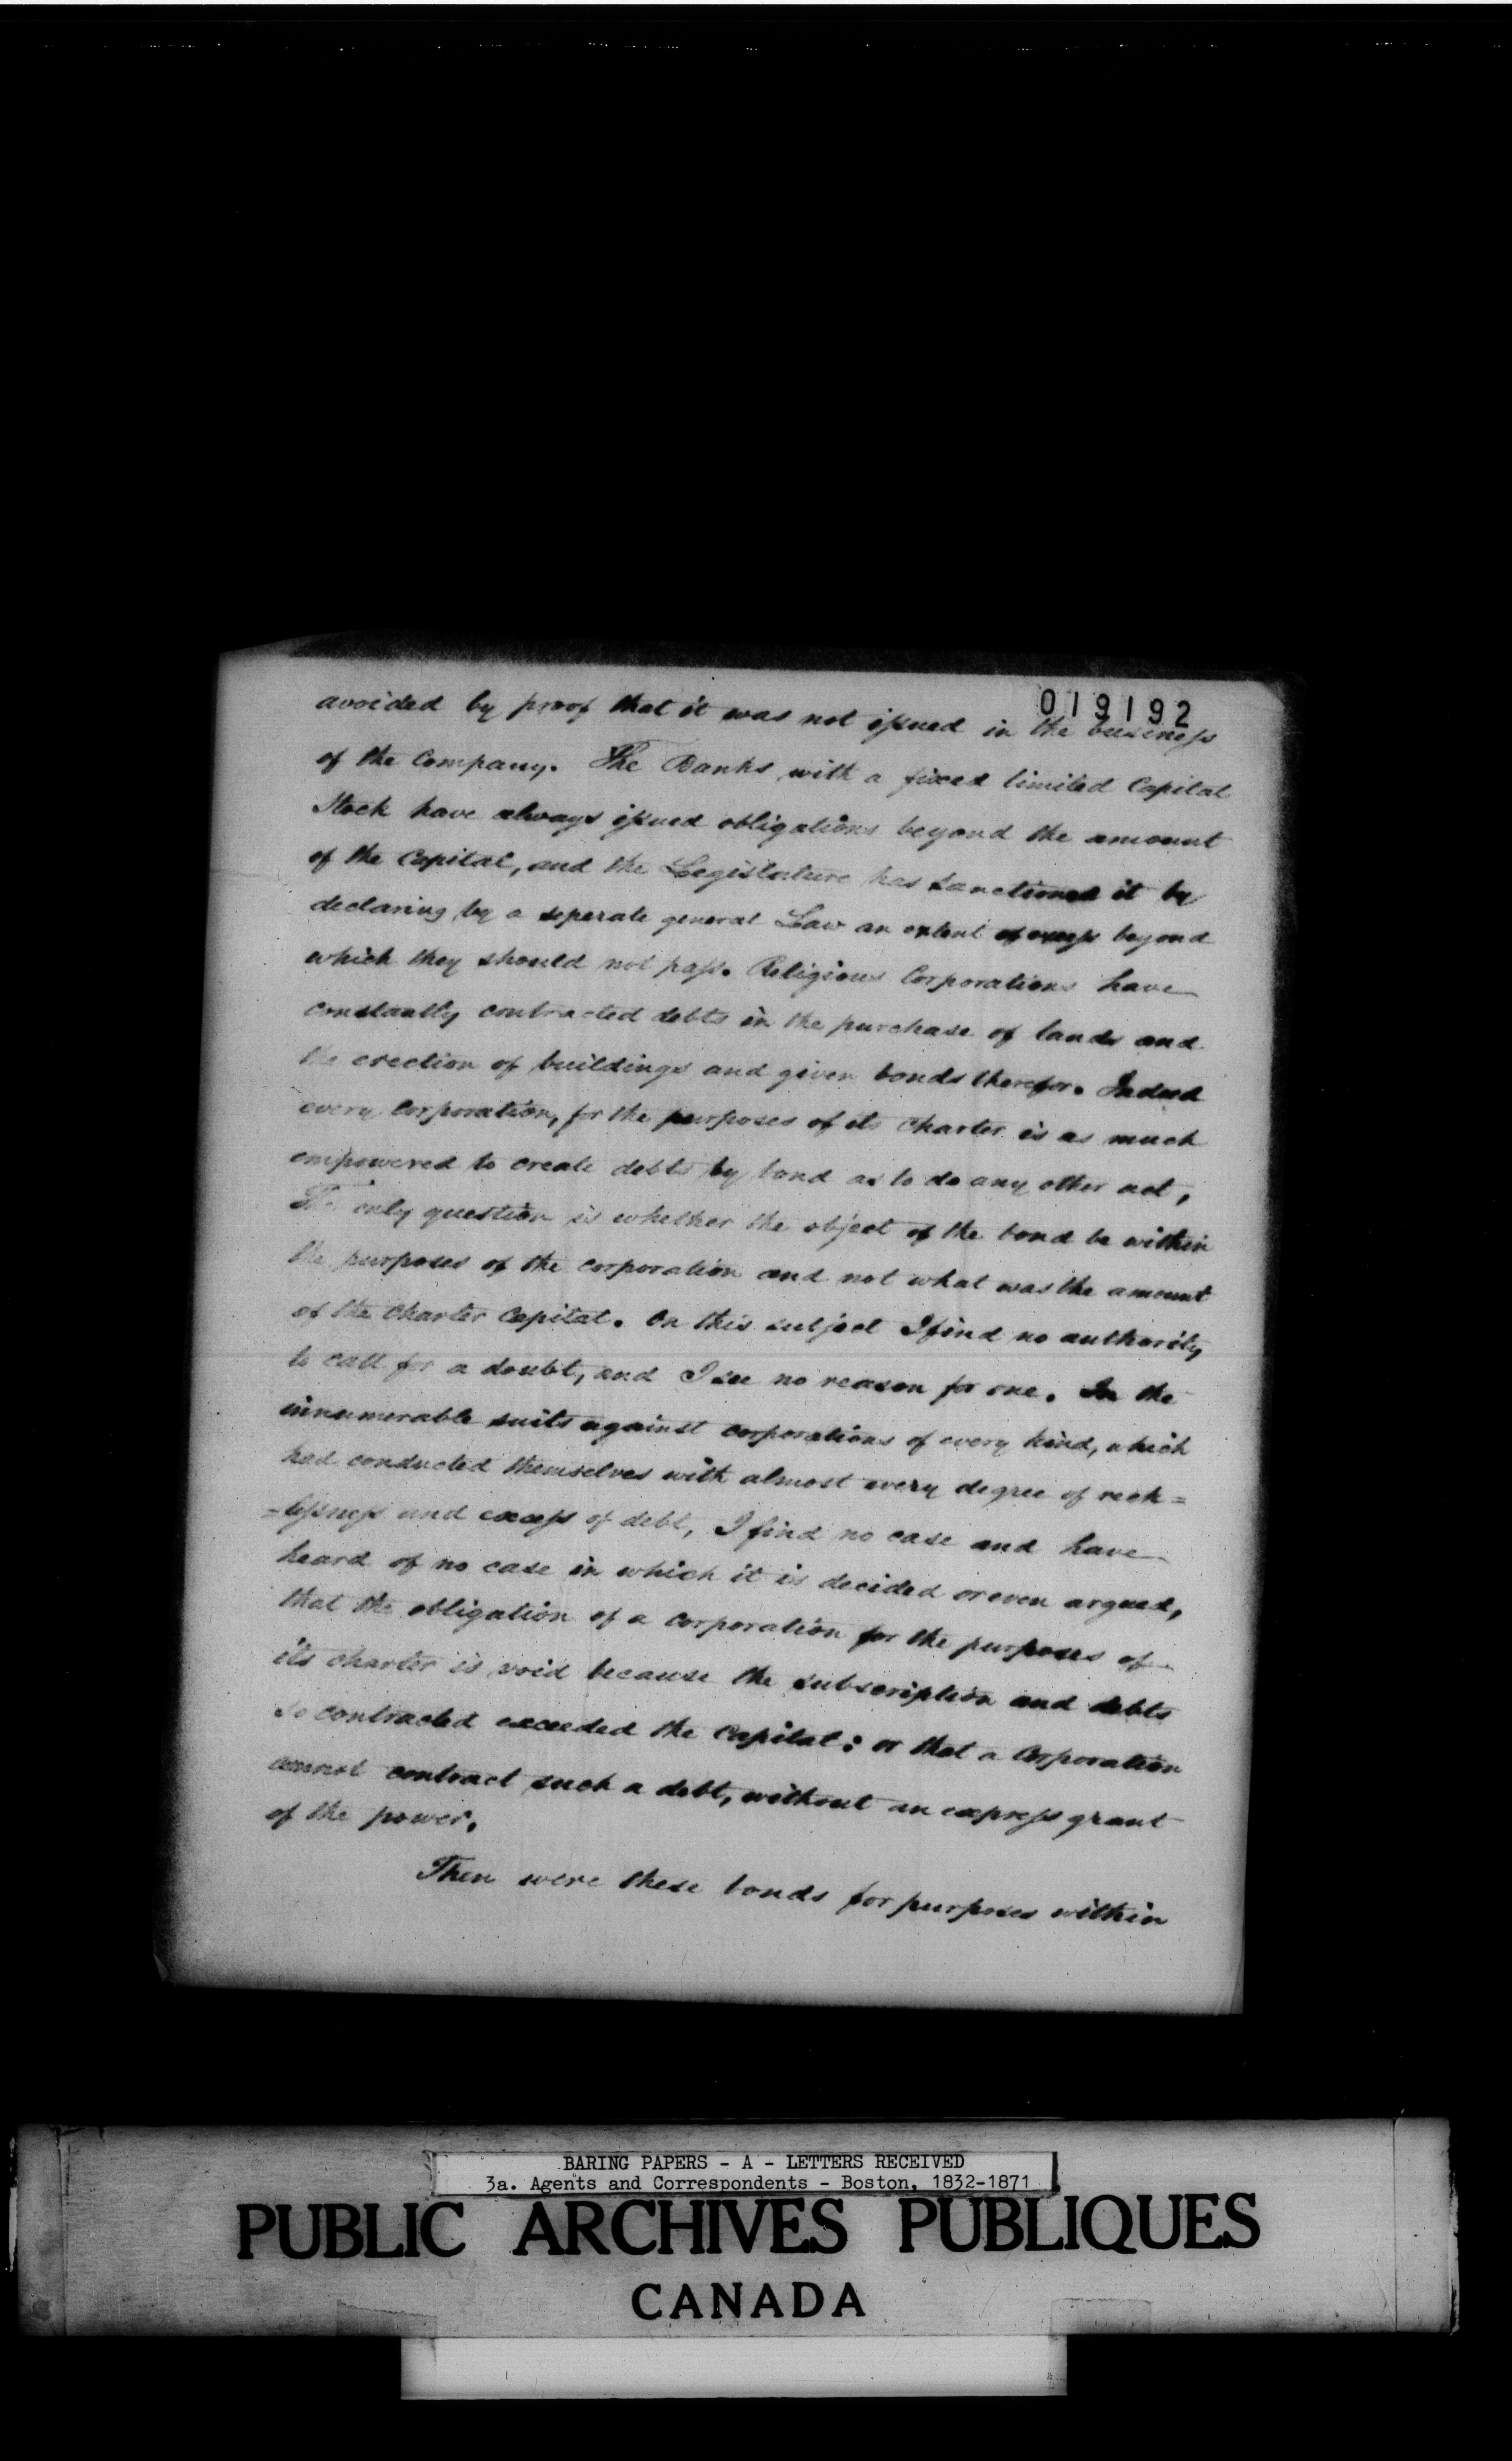 019192
avoided by proof that it was not issued in the business
of the Company. The Banks with a fixed limited Capital
Stock have always issued obligations beyond the amount
of the Capital, and the Legislature has sanctioned it by
declaring by a seperate general Law an extent of excess beyond
which they should not pass. Religious Corporations have
constantly contracted debts in the purchase of lands and
the erection of buildings and given bonds therefor. Indeed
every Corporation, for the purposes of its charter is as much
empowered to create debts by bond as to do any other act,
The only question is whether the object of the bond be within
the purposes of the corporation and not what was the amount
of the charter Capital. On this subject I find no authority
to call for a doubt, and I see no reason for one. In the
innumerable suits against corporations of every kind, which
had conducted themselves with almost every degree of reck=
=lessness and excess of debt, I find no case and have
heard of no case in which it is decided or even argued,
that the obligation of a Corporation for the purposes of
its charter is void because the subscription and debts
so contracted exceeded the Capital: or that a Corporation
cannot contract such a debt, without an express grant
of the power.
Then were these bonds for purposes within
BARING PAPERS - A - LETTERS RECEIVED
3a. Agents and Correspondents - Boston, 1832-1871
PUBLIC ARCHIVES PUBLIQUES
CANADA